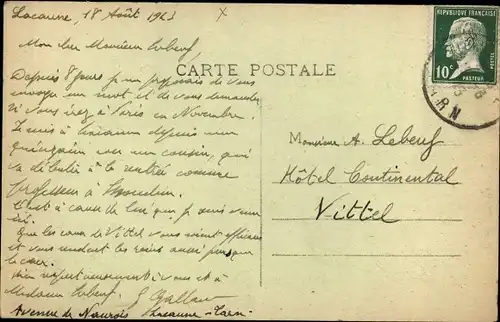 Lacaune, 18 Août 1923
Mon cher Monsieur Lebeuf,
Depuis 8 jours je me proposais de vous
envoyer un mot et de vous demander
si vous irez à Paris en Novembre.
Je suis à Lacaune depuis une
quinzaine avec un cousin, qui
va débuter à la rentrée comme
professeur à
C'est à cause de lui que je suis venu
ici.
Que les eaux de Vittel vous soient efficaces
et vous rendent les reins aussi
le cœur.
Bien respectueusement à vous et à
Madame Lebeuf.
Avenue de Naurois Lacaune - Tarn -
CARTE POSTALE
Monsieur A. Lebeuf
Hôtel Continental
Vittel
REPUBLIQUE FRANÇAISE
POSTES
10c
PASTEUR